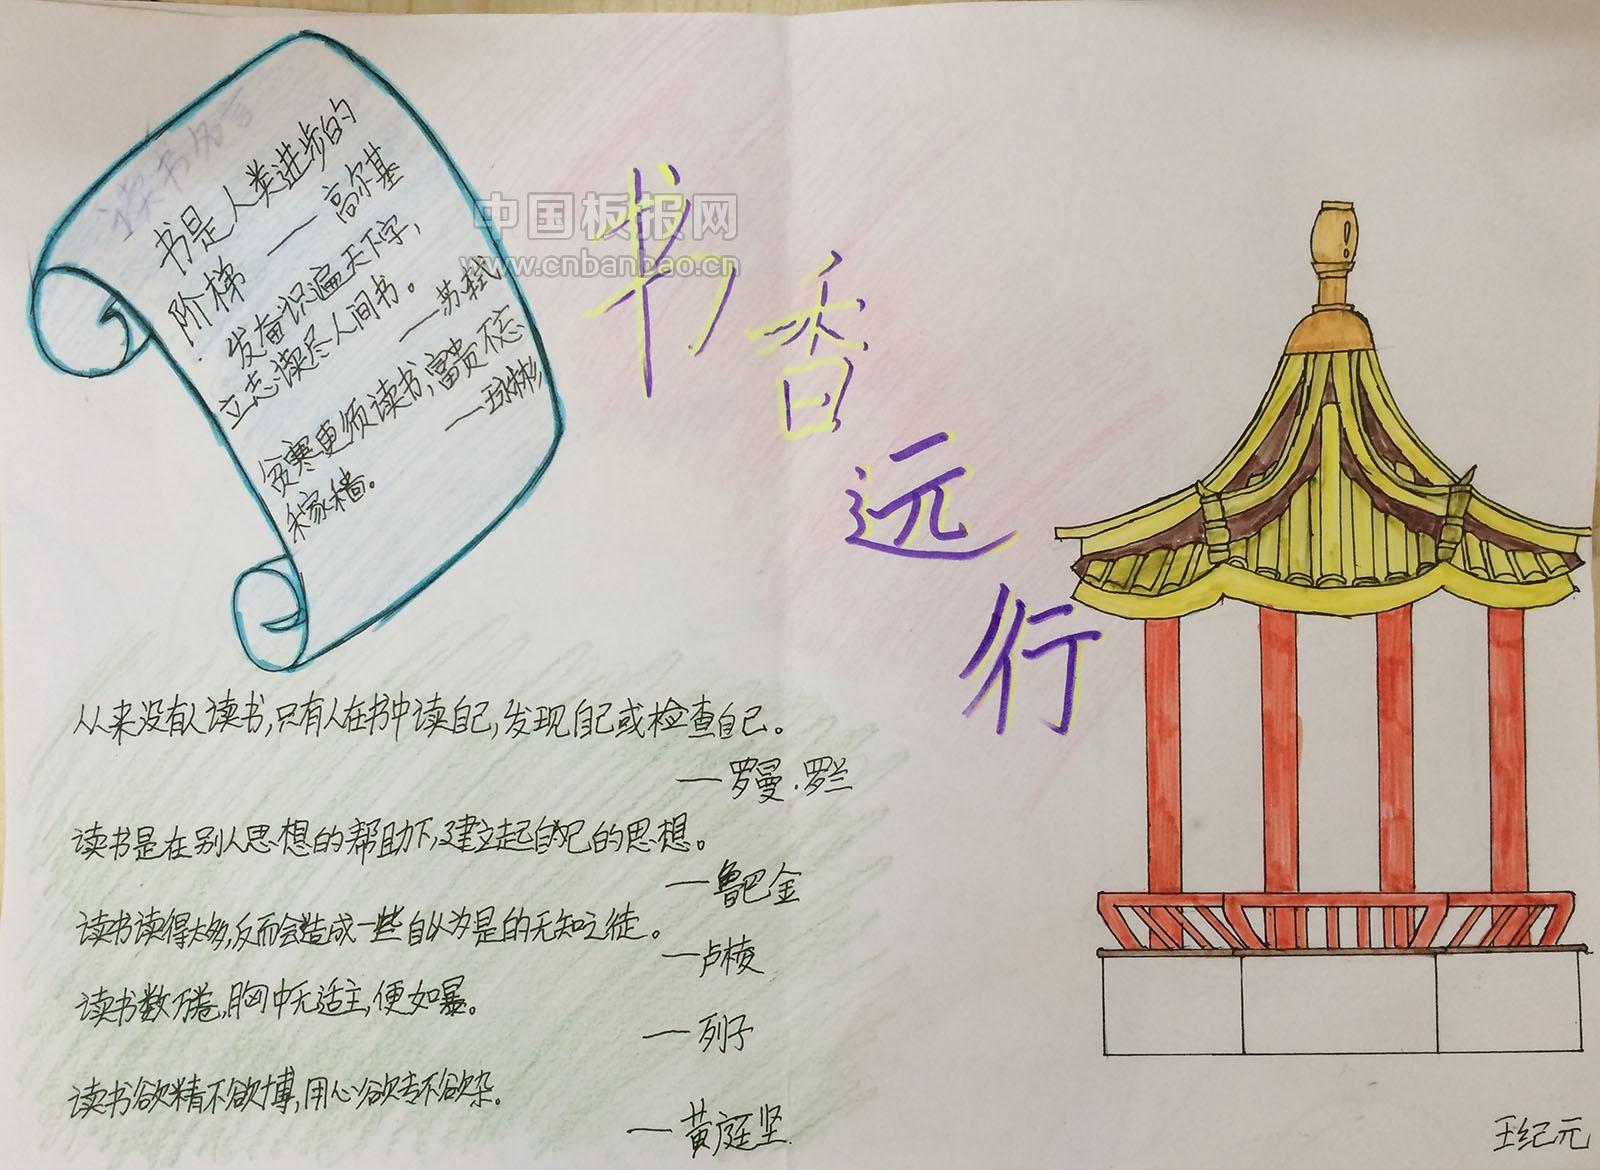 读书名言
书是人类进步的
阶梯 ——高尔基
发奋识遍天下字，
立志读尽人间书。
——苏轼
贫寒更须读书，富贵不忘
稼穑。
——王永彬
中国板报网
www.cnbanbao.cn
书香远行
从来没有人读书，只有人在书中读自己，发现自己或检查自己。
——罗曼·罗兰
读书是在别人思想的帮助下，建立起自己的思想。
——鲁巴金
读书读得太多，反而会造成一些自以为是的无知之徒。
——卢梭
读书数万卷，胸中无适主，便如暴。
——列子
读书欲精不欲博，用心欲专不欲杂。
——黄庭坚
王纪元